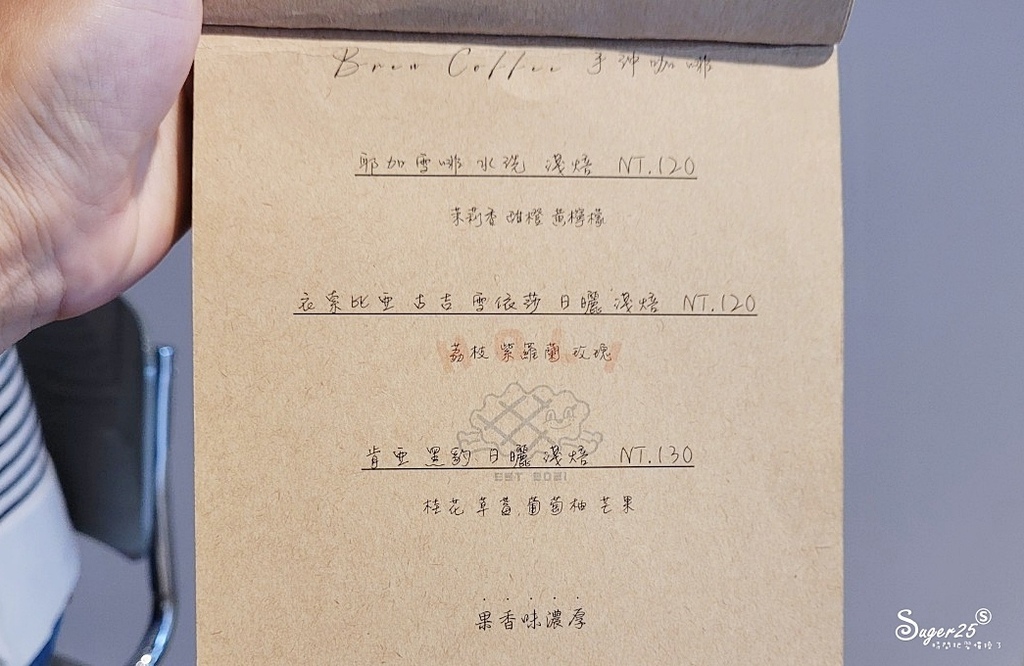 Brew Coffee 手沖咖啡
耶加雪啡 水洗 淺焙 NT.120
茉莉香 甜橙 黃檸檬
衣索比亞 古吉 雪依莎 日曬 淺焙 NT.120
荔枝 紫羅蘭 玫瑰
肯亞 黑豹 日曬 淺焙 NT.130
EST 2021
桂花 草莓 葡萄柚 芒果
果香味濃厚
Suger25